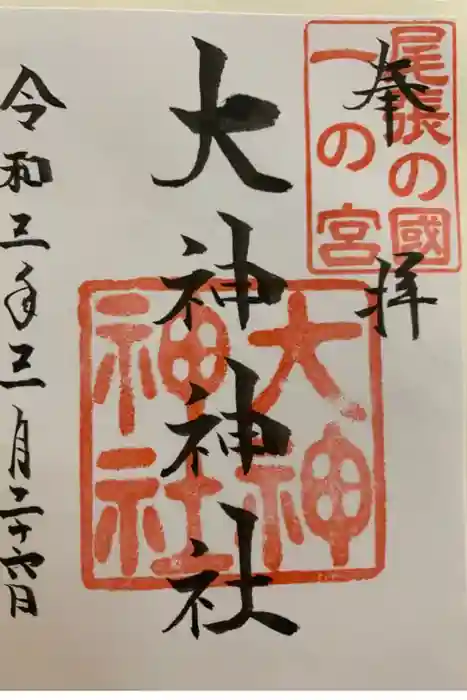 奉拝
尾張の國
一の宮
大神神社
大神
神社
令和三年三月二十六日